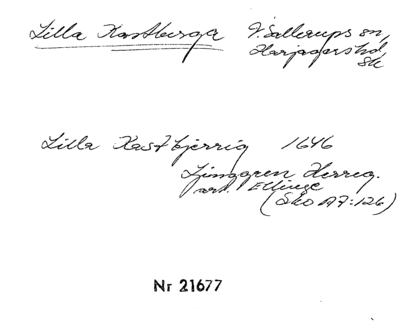 Lilla Kastberga V. Sallerups sn,
Harjagers hd,
Sk
Lilla Kastbjerrig 1646
Ljunggren Herreg.
art. Ellinge
(Sko A7:126)
Nr 21677